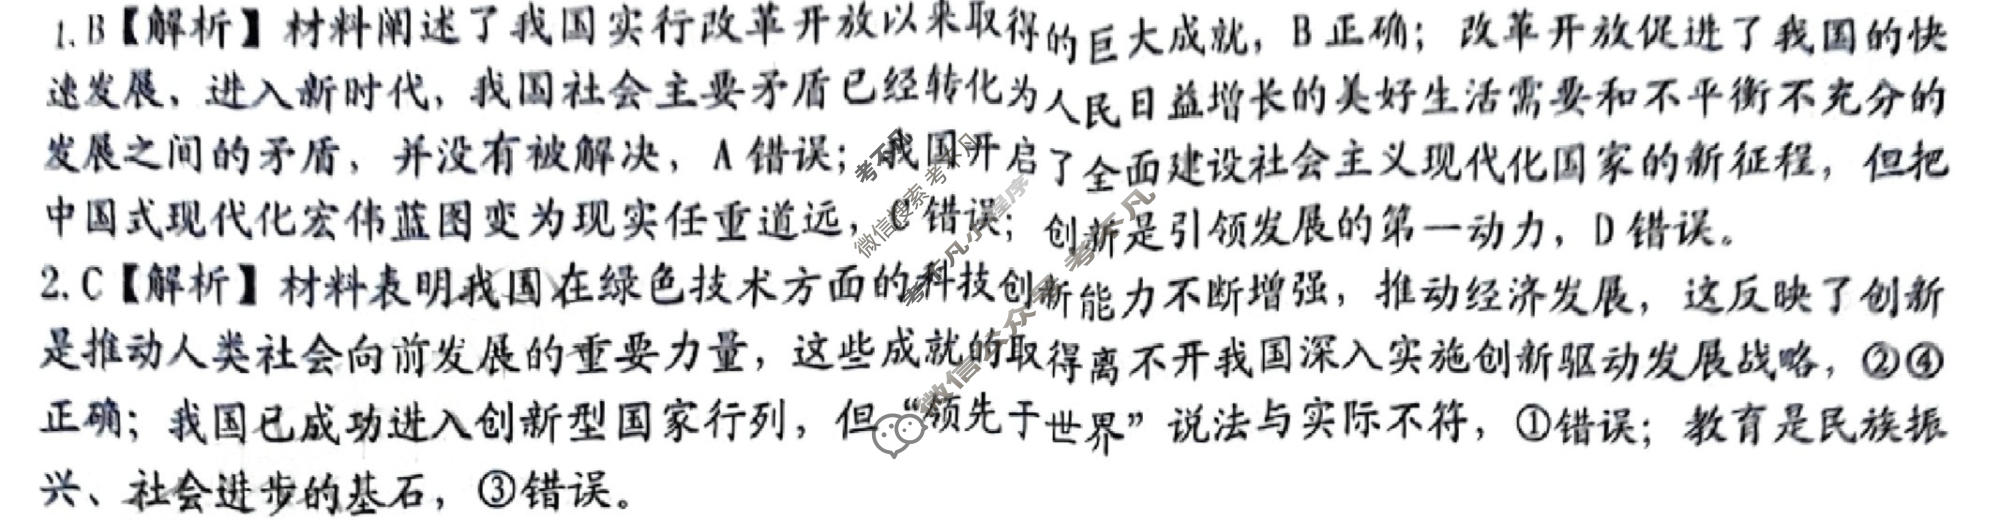 1.B【解析】材料阐述了我国实行改革开放以来取得的巨大成就，B正确；改革开放促进了我国的快
速发展、进入新时代，我国社会主要矛盾已经转化为人民日益增长的美好生活需要和不平衡不充分的
发展之间的矛盾，并没有被解决，A错误；我国开启了全面建设社会主义现代化国家的新征程，但把
中国式现代化宏伟蓝图变为现实任重道远，C错误；创新是引领发展的第一动力，D错误。
2.C【解析】材料表明我国在绿色技术方面的科技创新能力不断增强，推动经济发展，这反映了创新
是推动人类社会向前发展的重要力量，这些成就的取得离不开我国深入实施创新驱动发展战略，②④
正确；我国已成功进入创新型国家行列，但“领先于世界”说法与实际不符，①错误；教育是民族振
兴、社会进步的基石，③错误。
考不凡
微信搜索 考不凡
考不凡小程序
微信公众号 考不凡